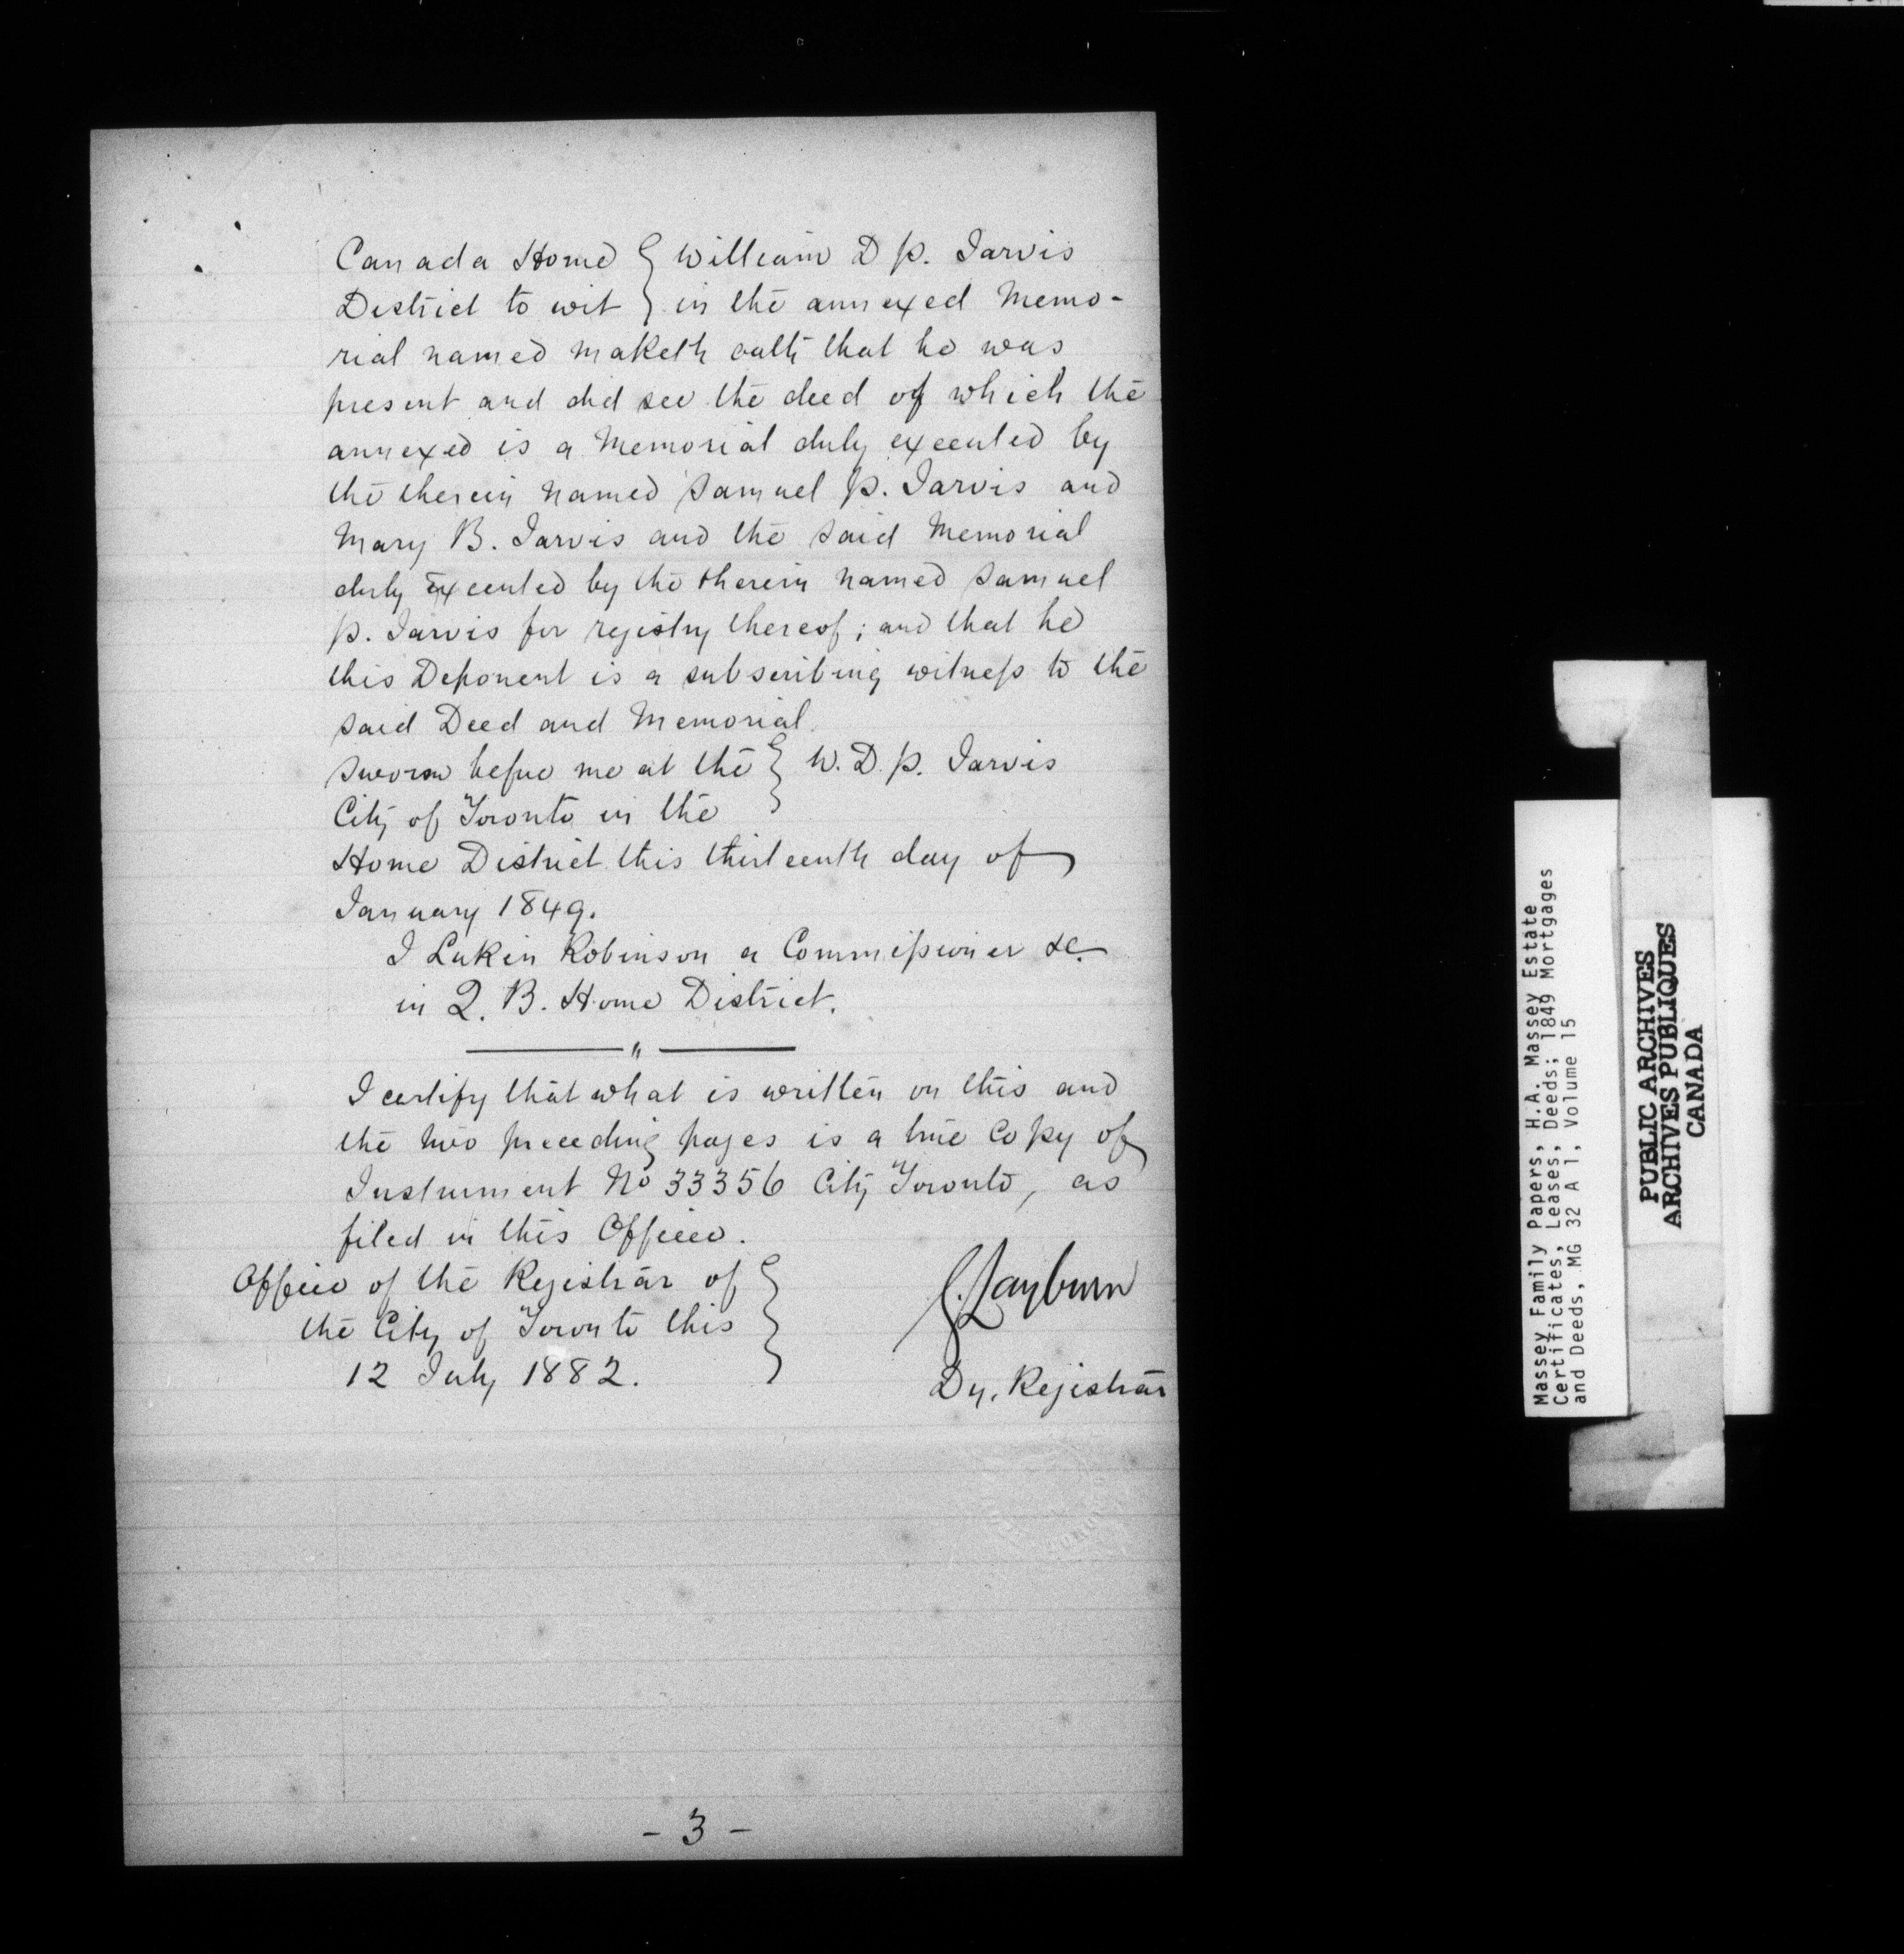 Canada Home } William D P. Jarvis
District to wit } in the annexed Memo-
rial named maketh oath that he was
present and did see the deed of which the
annexed is a Memorial duly executed by
the therein named Samuel P. Jarvis and
Mary B. Jarvis and the said Memorial
duly Executed by the therein named Samuel
P. Jarvis for registry thereof; and that he
this Deponent is a subscribing witness to the
said Deed and Memorial.
Sworn before me at the } W. D. P. Jarvis
City of Toronto in the
Home District this thirteenth day of
January 1849.
J Lukin Robinson a Commissioner &c.
in Q. B. Home District.
"
I certify that what is written on this and
the two preceding pages is a true Copy of
Instrument No 33356 City Toronto, as
filed in this Office.
Office of the Registrar of
the City of Toronto this
12 July 1882.
Dy. Registrar
- 3 -
Massey Family Papers, H.A. Massey Estate
Certificates, Leases, Deeds; 1849 Mortgages
and Deeds, MG 32 A 1, Volume 15
PUBLIC ARCHIVES
ARCHIVES PUBLIQUES
CANADA